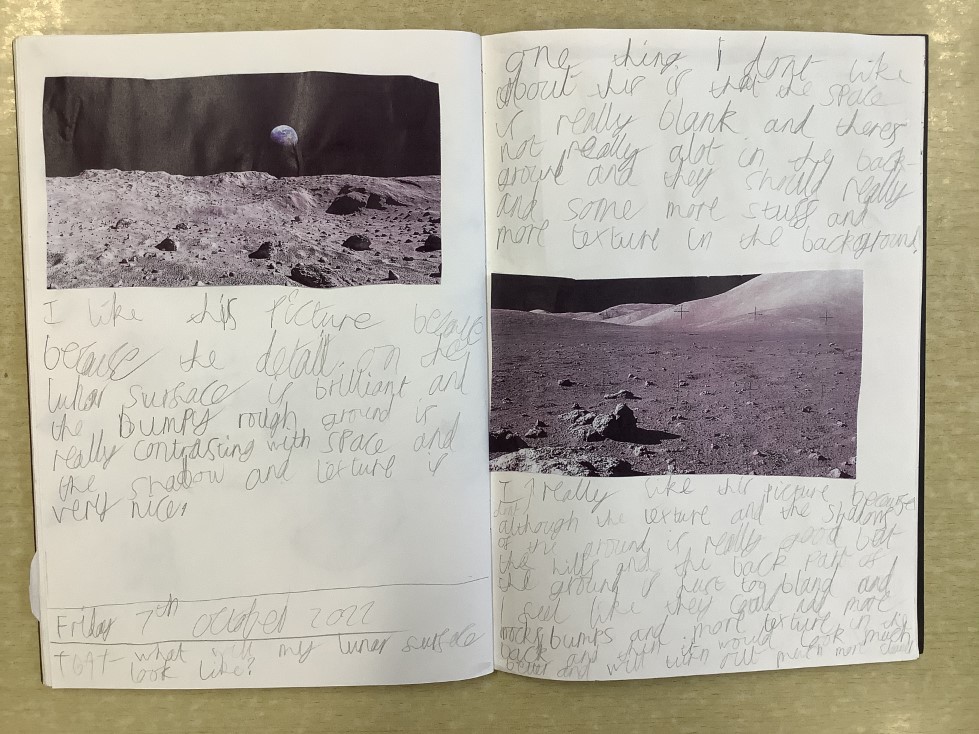 I like this Picture because
because the detail on the
lunar surface is brilliant and
the Bumpy rough ground is
really contrasing with space and
the shadow and texture is
very nice.
Friday 7th october 2022
TGAT- what will my lunar surface
look like?
one thing I dont like
about this is that the space
is really blank and theres
not really alot in the back-
ground and they should really
and some more stuff and
more texture in the background.
I really like this picture because
although the texture and the shadows
of the ground is really good but
the hills and the back part of
the ground is just too bland and
I feel like they could add more
rocks bumps and more texture in the
back and then it would look much
better and will turn out much more